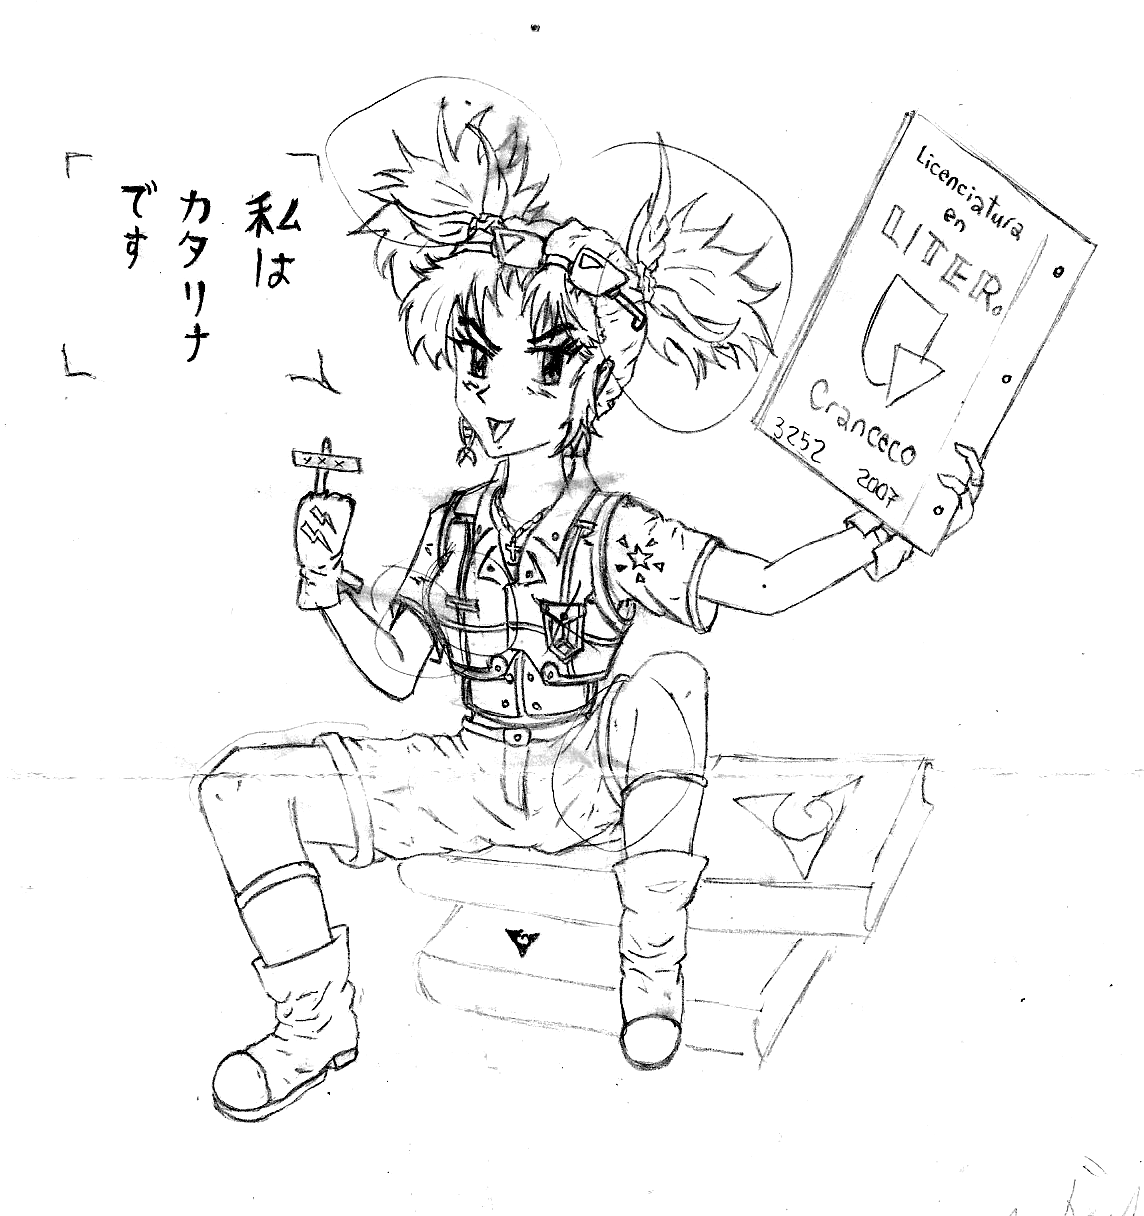 私は
カタリナ
です
Licenciatura
en
LITER.
Cranceco
3252 2007